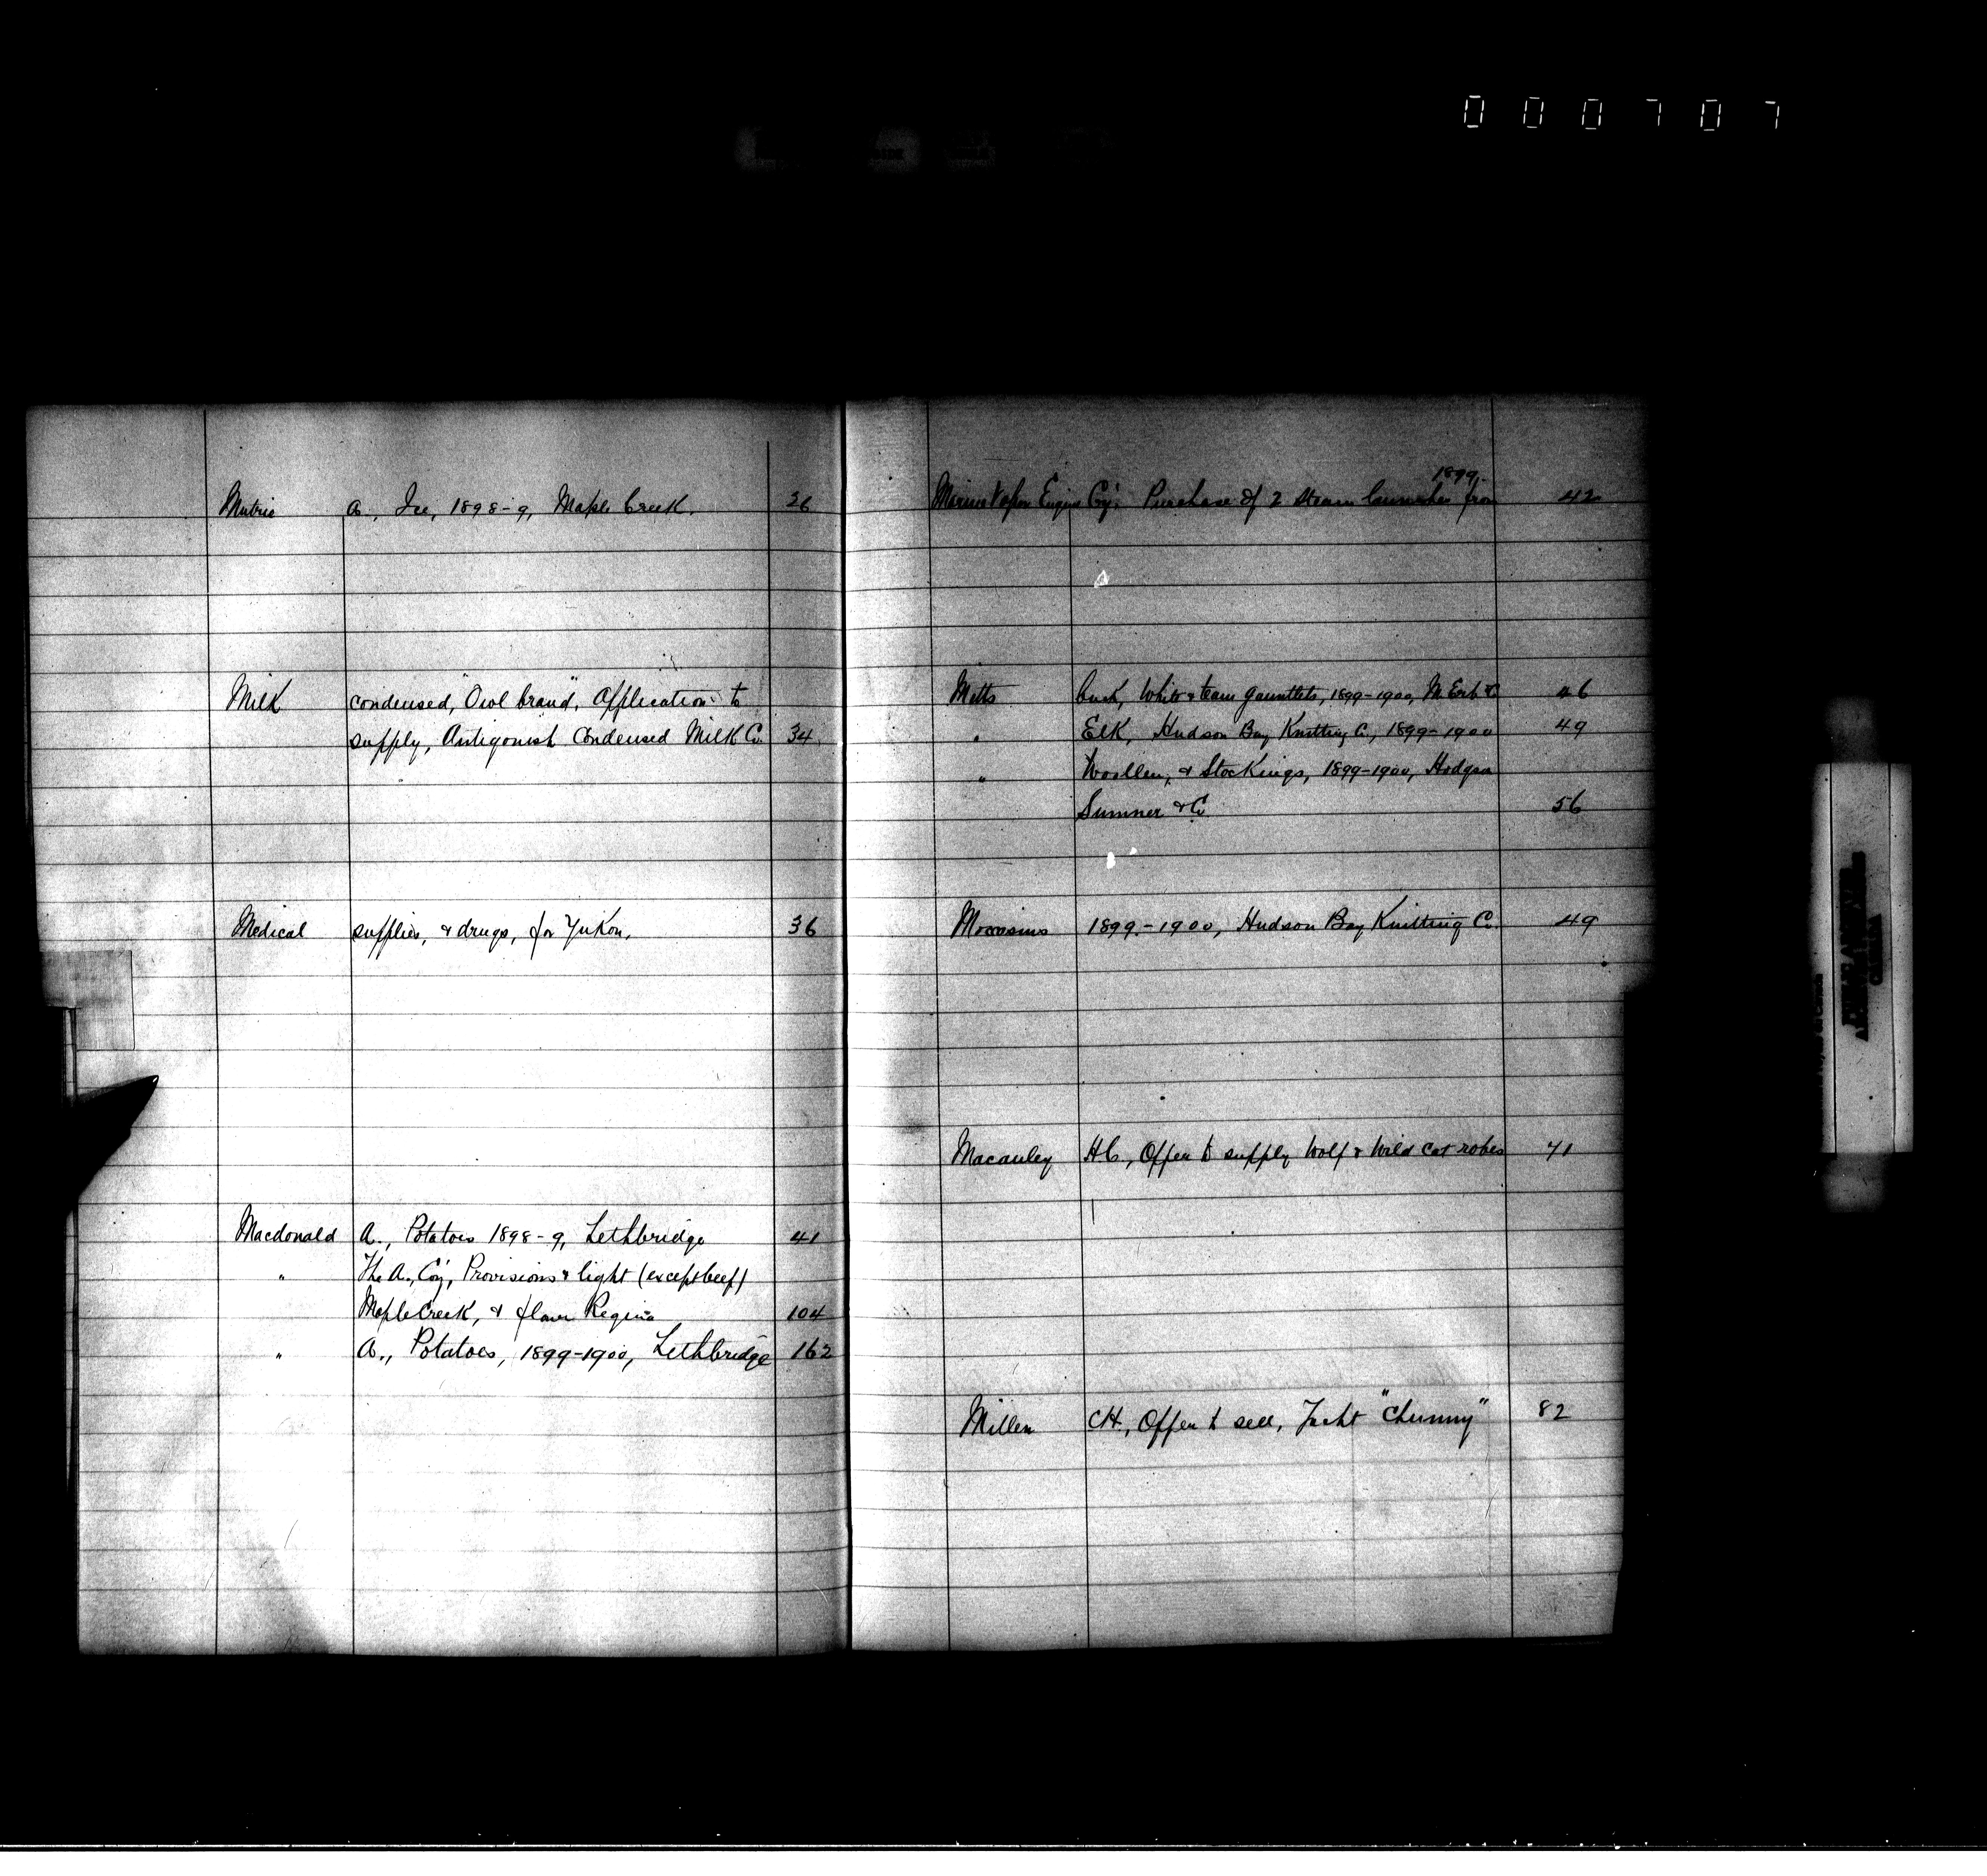 000707
Mutrie A., Ice, 1898-9, Maple Creek. 26
Milk condensed, "Owl brand", Application to
supply, Antigonish Condensed Milk Co. 34
Medical supplies, & drugs, for Yukon, 36
Macdonald A., Potatoes 1898-9, Lethbridge 41
" The A., Coy, Provisions & light (except beef)
Maple Creek, & flour Regina 104
" A., Potatoes, 1899-1900, Lethbridge 162
1899
Marine Vapor Engine Coy, Purchase of 2 steam launches from 42
Mitts buck, White & team gauntlets, 1899-1900, M. Erb & Co 46
" Elk, Hudson Bay Knitting Co., 1899-1900 49
" Woollen, & Stockings, 1899-1900, Hodgson
Sumner & Co. 56
Moccasins 1899-1900, Hudson Bay Knitting Co. 49
Macauley H C., Offer to supply Wolf & Wild cat robes 71
Miller C H., Offer to sell, Yacht "Chummy" 82